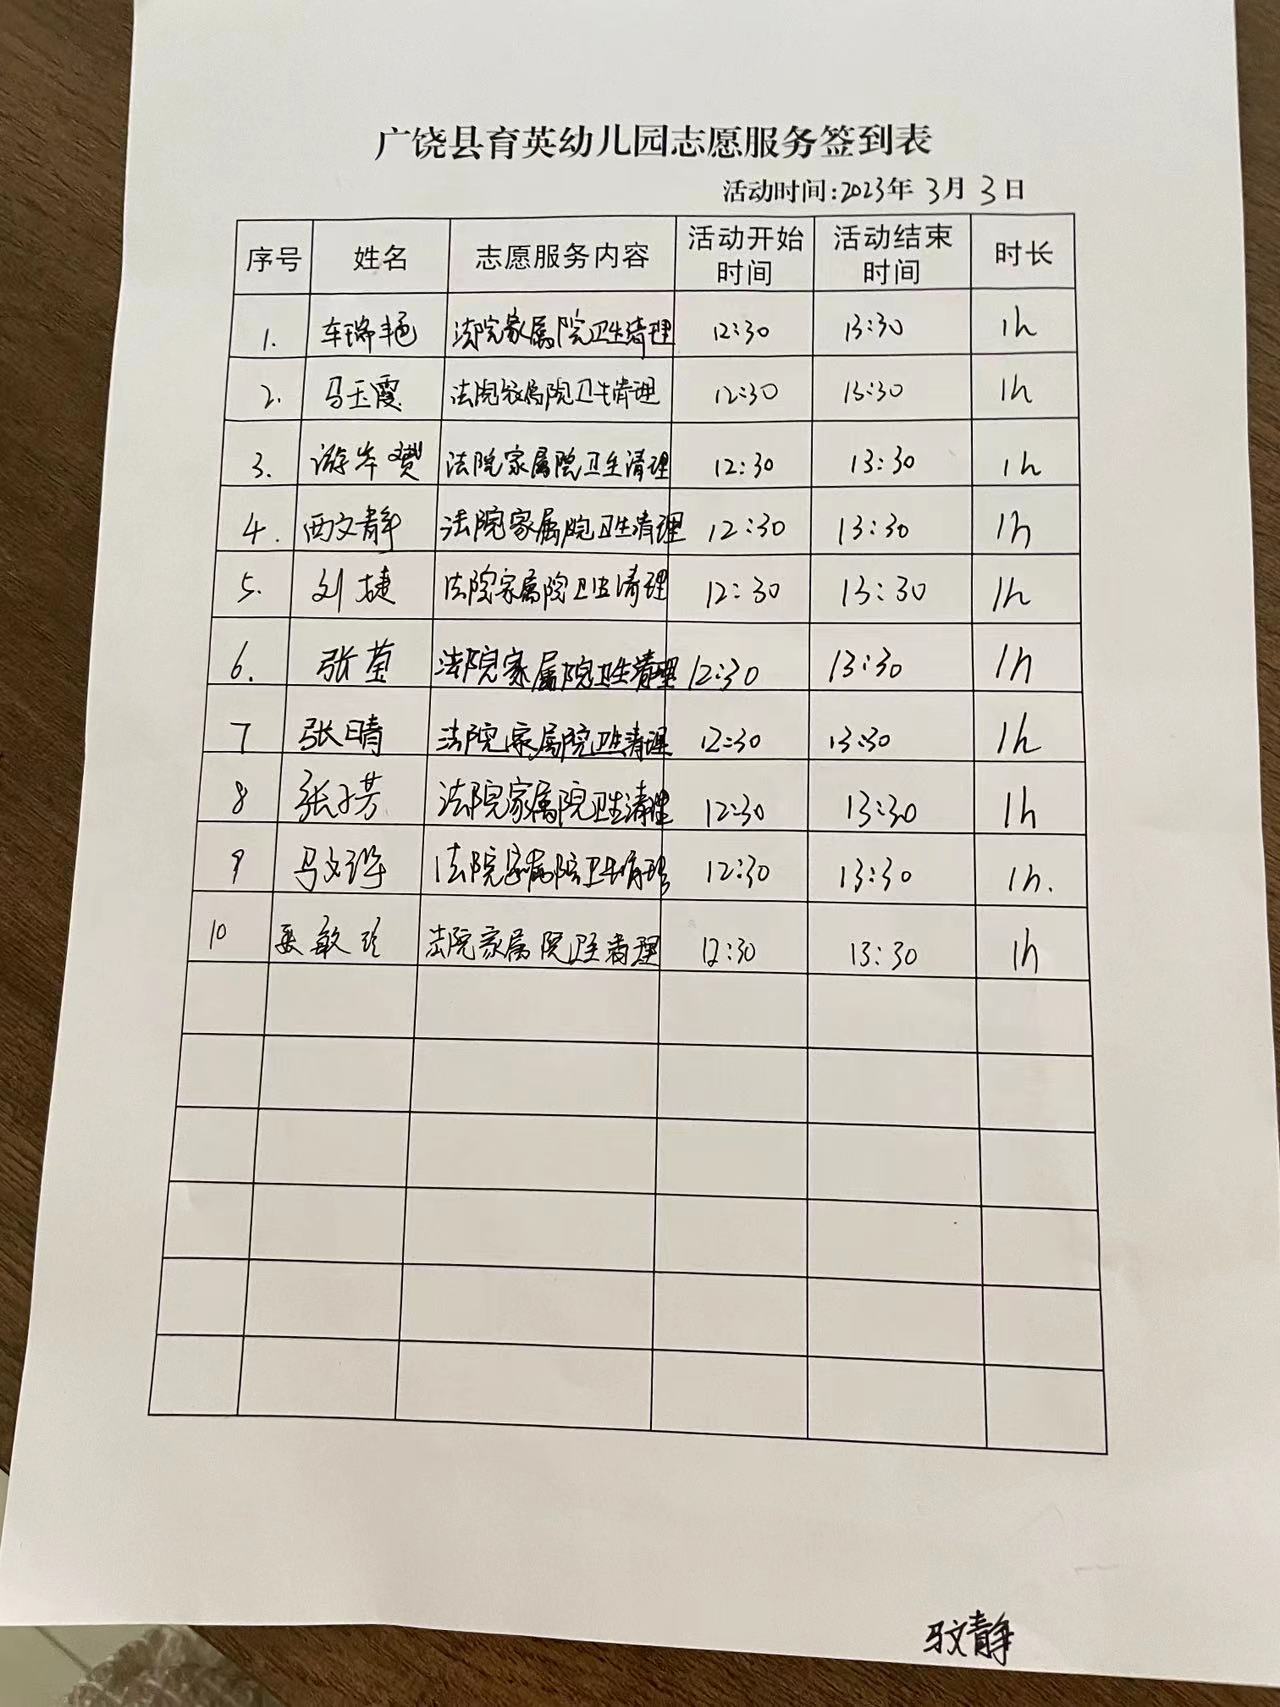 广饶县育英幼儿园志愿服务签到表
活动时间:2023年 3月 3日
序号 姓名 志愿服务内容 活动开始时间 活动结束时间 时长
1. 车瑞艳 法院家属院卫生清理 12:30 13:30 1h
2. 马玉霞 法院家属院卫生清理 12:30 13:30 1h
3. 法院家属院卫生清理 12:30 13:30 1h
4. 西文静 法院家属院卫生清理 12:30 13:30 1h
5. 刘捷 法院家属院卫生清理 12:30 13:30 1h
6. 张莹 法院家属院卫生清理 12:30 13:30 1h
7 张晴 法院家属院卫生清理 12:30 13:30 1h
8 张子芳 法院家属院卫生清理 12:30 13:30 1h
9 法院家属院卫生清理 12:30 13:30 1h.
10 法院家属院卫生清理 12:30 13:30 1h